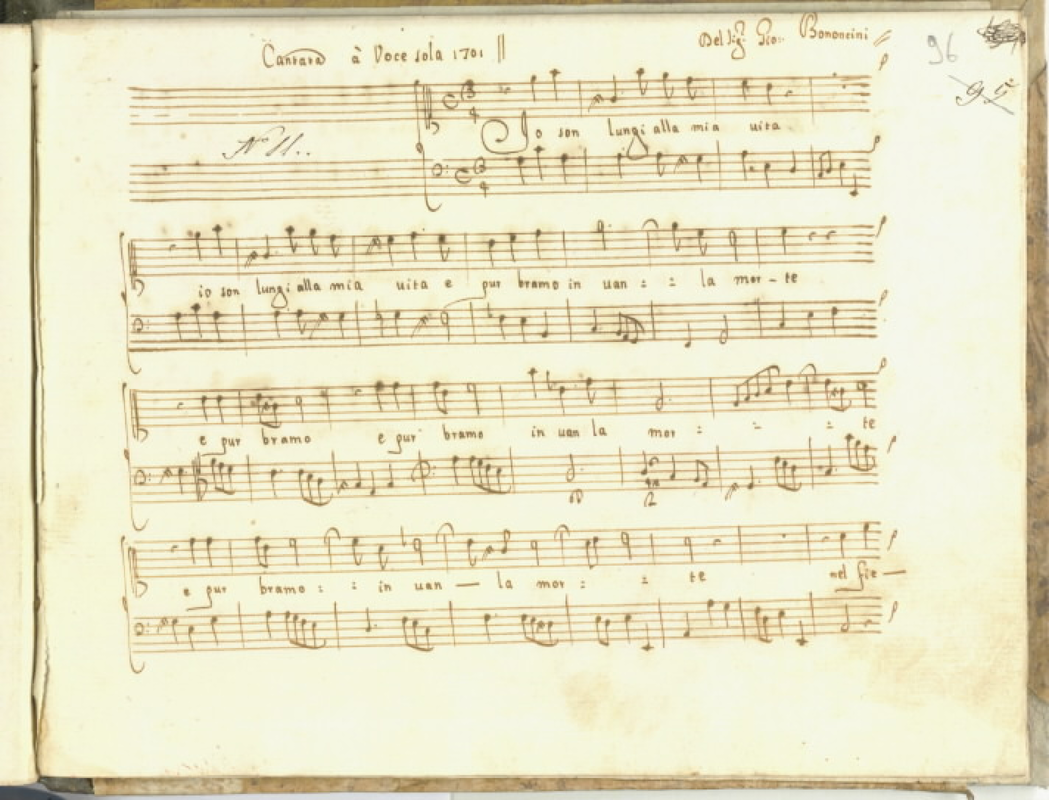 Cantata à Voce sola 1701
Del Sigr. Gio: Bononcini
96
95
No 11..
Io son lungi alla mia uita
io son lungi alla mia uita e pur bramo in uan : : la mor - te
e pur bramo e pur bramo in uan la mor : : : te
e pur bramo : : in uan — la mor : : te nel fie —